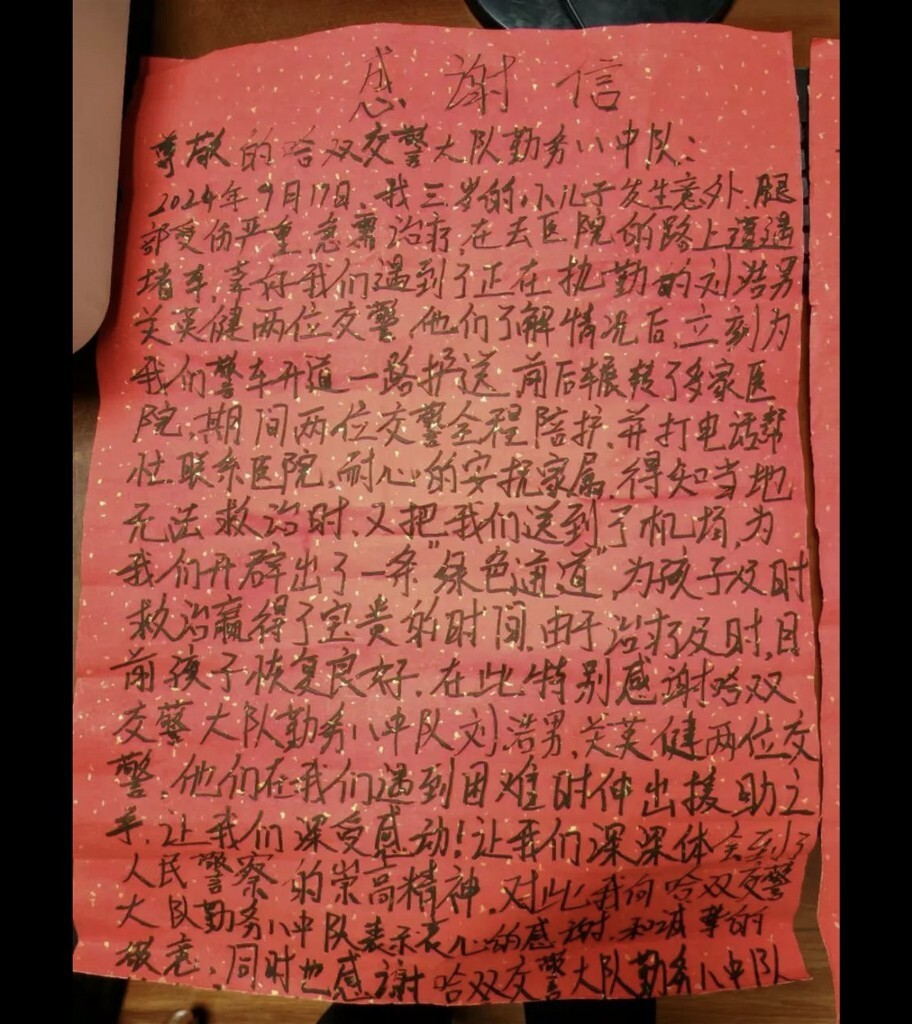 感谢信
尊敬的哈双交警大队勤务八中队:
2024年9月17日,我三岁的小儿子发生意外,腿
部受伤严重,急需治疗,在去医院的路上遭遇
堵车,幸好我们遇到了正在执勤的刘浩男
关英健两位交警,他们了解情况后,立刻为
我们警车开道一路护送,前后辗转了多家医
院,期间两位交警全程陪护,并打电话帮
忙联系医院,耐心的安抚家属,得知当地
无法救治时,又把我们送到了机场,为
我们开辟出了一条"绿色通道",为孩子及时
救治赢得了宝贵的时间,由于治疗及时,目
前孩子恢复良好,在此特别感谢哈双
交警大队勤务八中队刘浩男,关英健两位交
警,他们在我们遇到困难时伸出援助之
手,让我们深受感动!让我们深深体会到了
人民警察的崇高精神,对此我向哈双交警
大队勤务八中队表示衷心的感谢,和诚挚的
敬意,同时也感谢哈双交警大队勤务八中队